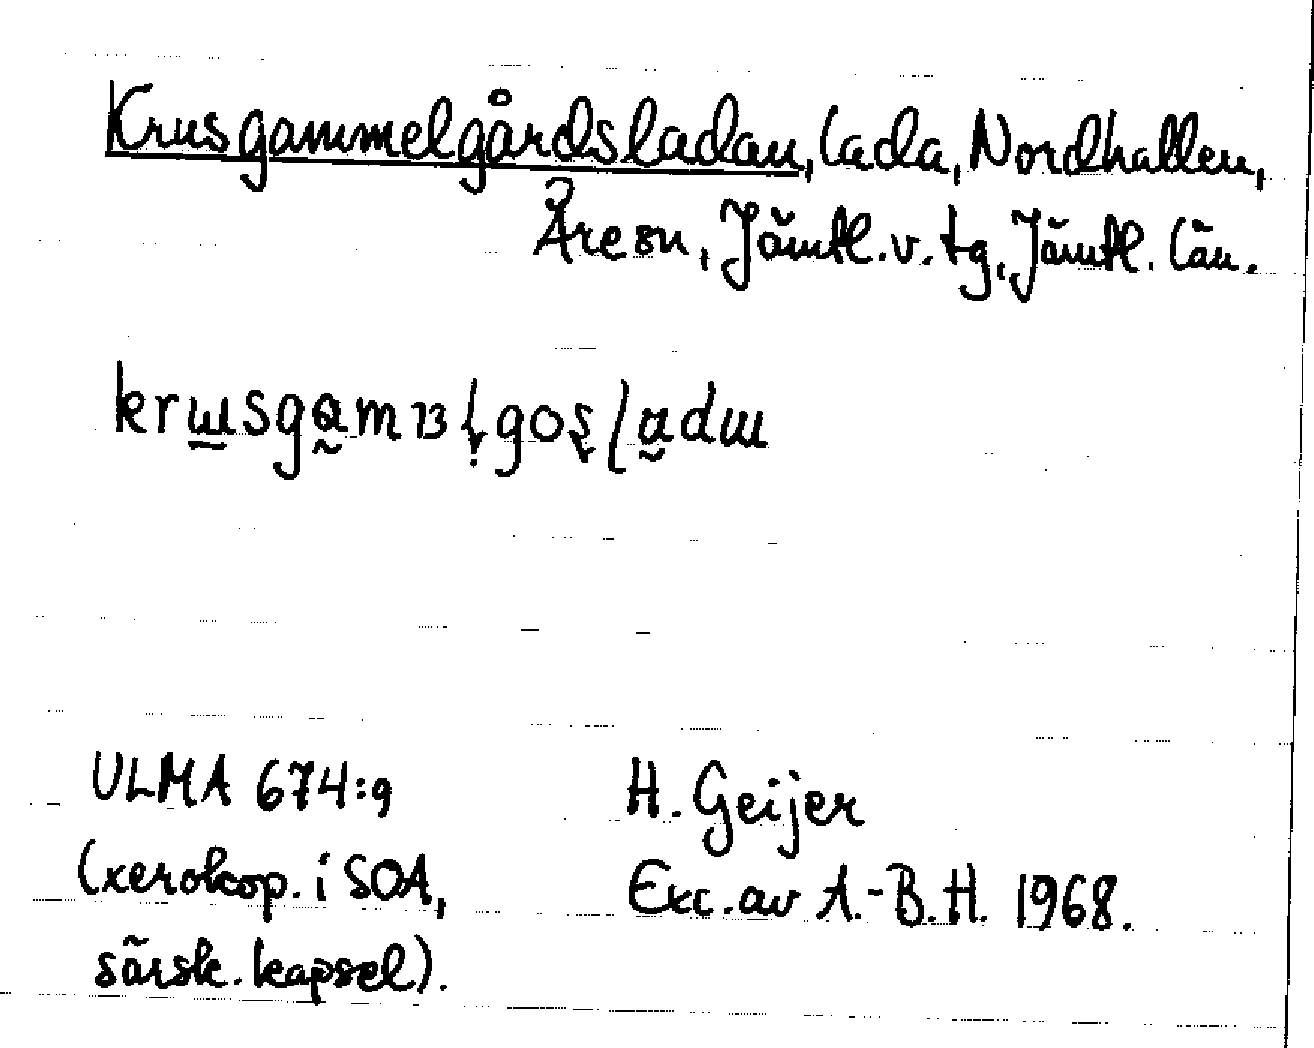 Krusgammelgårdsladan, lada, Nordhallen,
Åre sn, Jämtl. v. tg, Jämtl. län.
ULMA 674:9
(xerokop. i SOA,
särsk. kapsel).
H. Geijer
Exc. av A.-B.H. 1968.